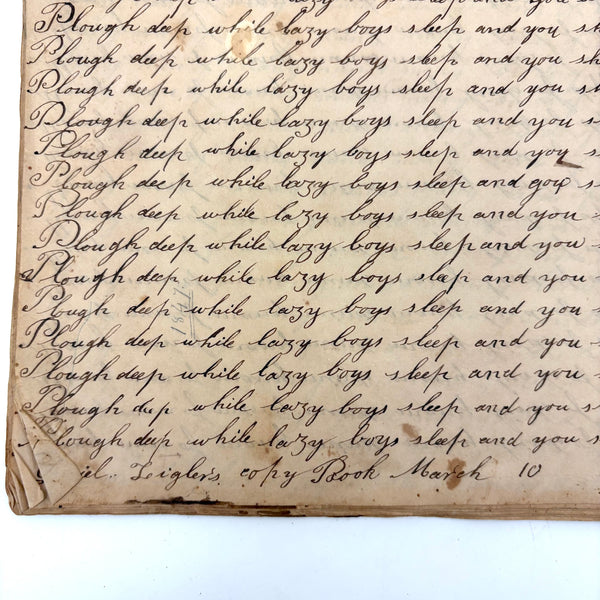 lazy boys sleep and you
Plough deep while lazy boys sleep and you sh
Plough deep while lazy boys sleep and you sh
Plough deep while lazy boys sleep and you st
Plough deep while lazy boys sleep and you s
Plough deep while lazy boys sleep and you s
Plough deep while lazy boys sleep and you s
Plough deep while lazy boys sleep and you
Plough deep while lazy boys sleep and you s
Plough deep while lazy boys sleep and you s
Plough deep while lazy boys sleep and you s
Plough deep while lazy boys sleep and you s
Plough deep while lazy boys sleep and you s
Plough deep while lazy boys sleep and you s
Plough deep while lazy boys sleep and you s
Zeigler's copy Book March 10